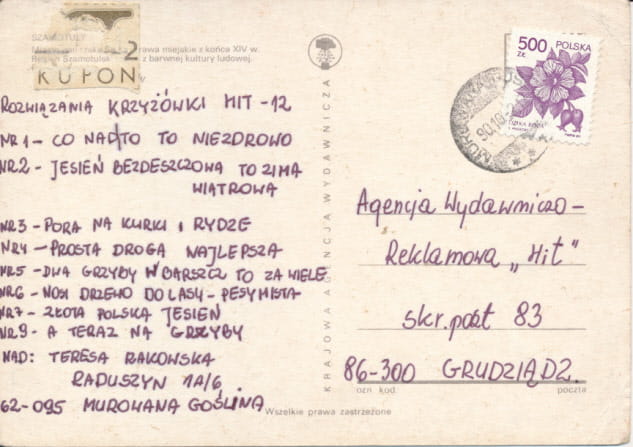 SZAMOTUŁY
prawa miejskie z końca XIV w.
z barwnej kultury ludowej.
2
KUPON
ROZWIĄZANIA KRZYŻÓWKI HIT -12
NR 1 - CO NADTO TO NIEZDROWO
NR2 - JESIEŃ BEZDESZCZOWA TO ZIMA
WIATROWA
NR3 - PORA NA KURKI I RYDZE
NR4 - PROSTA DROGA NAJLEPSZA
NR5 - DWA GRZYBY W BARSZCZ TO ZA WIELE
NR6 - NOSI DRZEWO DO LASU - PESYMISTA
NR7 - ZŁOTA POLSKA JESIEŃ
NR9 - A TERAZ NA GRZYBY
NAD: TERESA RAKOWSKA
RADUSZYN 1A/6
62-095 MUROWANA GOŚLINA
KRAJOWA AGENCJA WYDAWNICZA
500 ZŁ
POLSKA
90.10
Agencja Wydawniczo-
Reklamowa „Hit"
skr. poczt 83
86-300 GRUDZIĄDZ.
ozn kod
poczta
Wszelkie prawa zastrzeżone